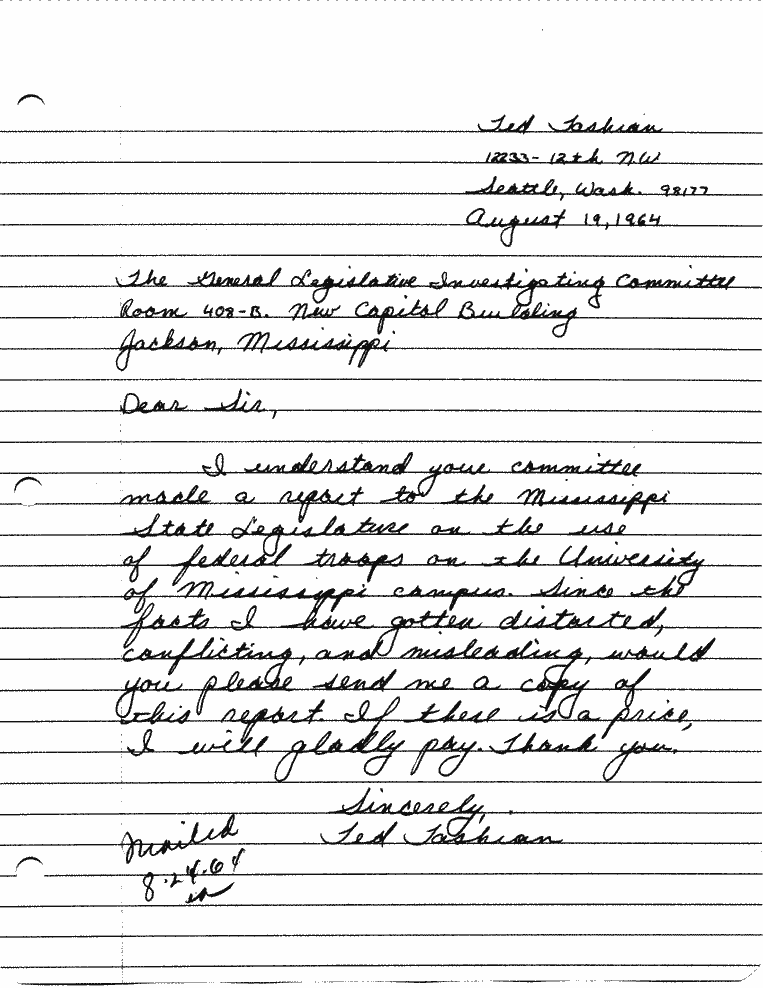 Ted Tashian
12233-12th NW
Seattle, Wash. 98177
August 19, 1964
The General Legislative Investigating Committee
Room 408-B. New Capitol Building
Jackson, Mississippi
Dear Sir,
I understand your committee
made a report to the Mississippi
State Legislature on the use
of federal troops on the University
of Mississippi campus. Since the
facts I have gotten distorted,
conflicting, and misleading, would
you please send me a copy of
this report. If there is a price,
I will gladly pay. Thank you.
Sincerely,
Ted Tashian
Mailed
8.24.64